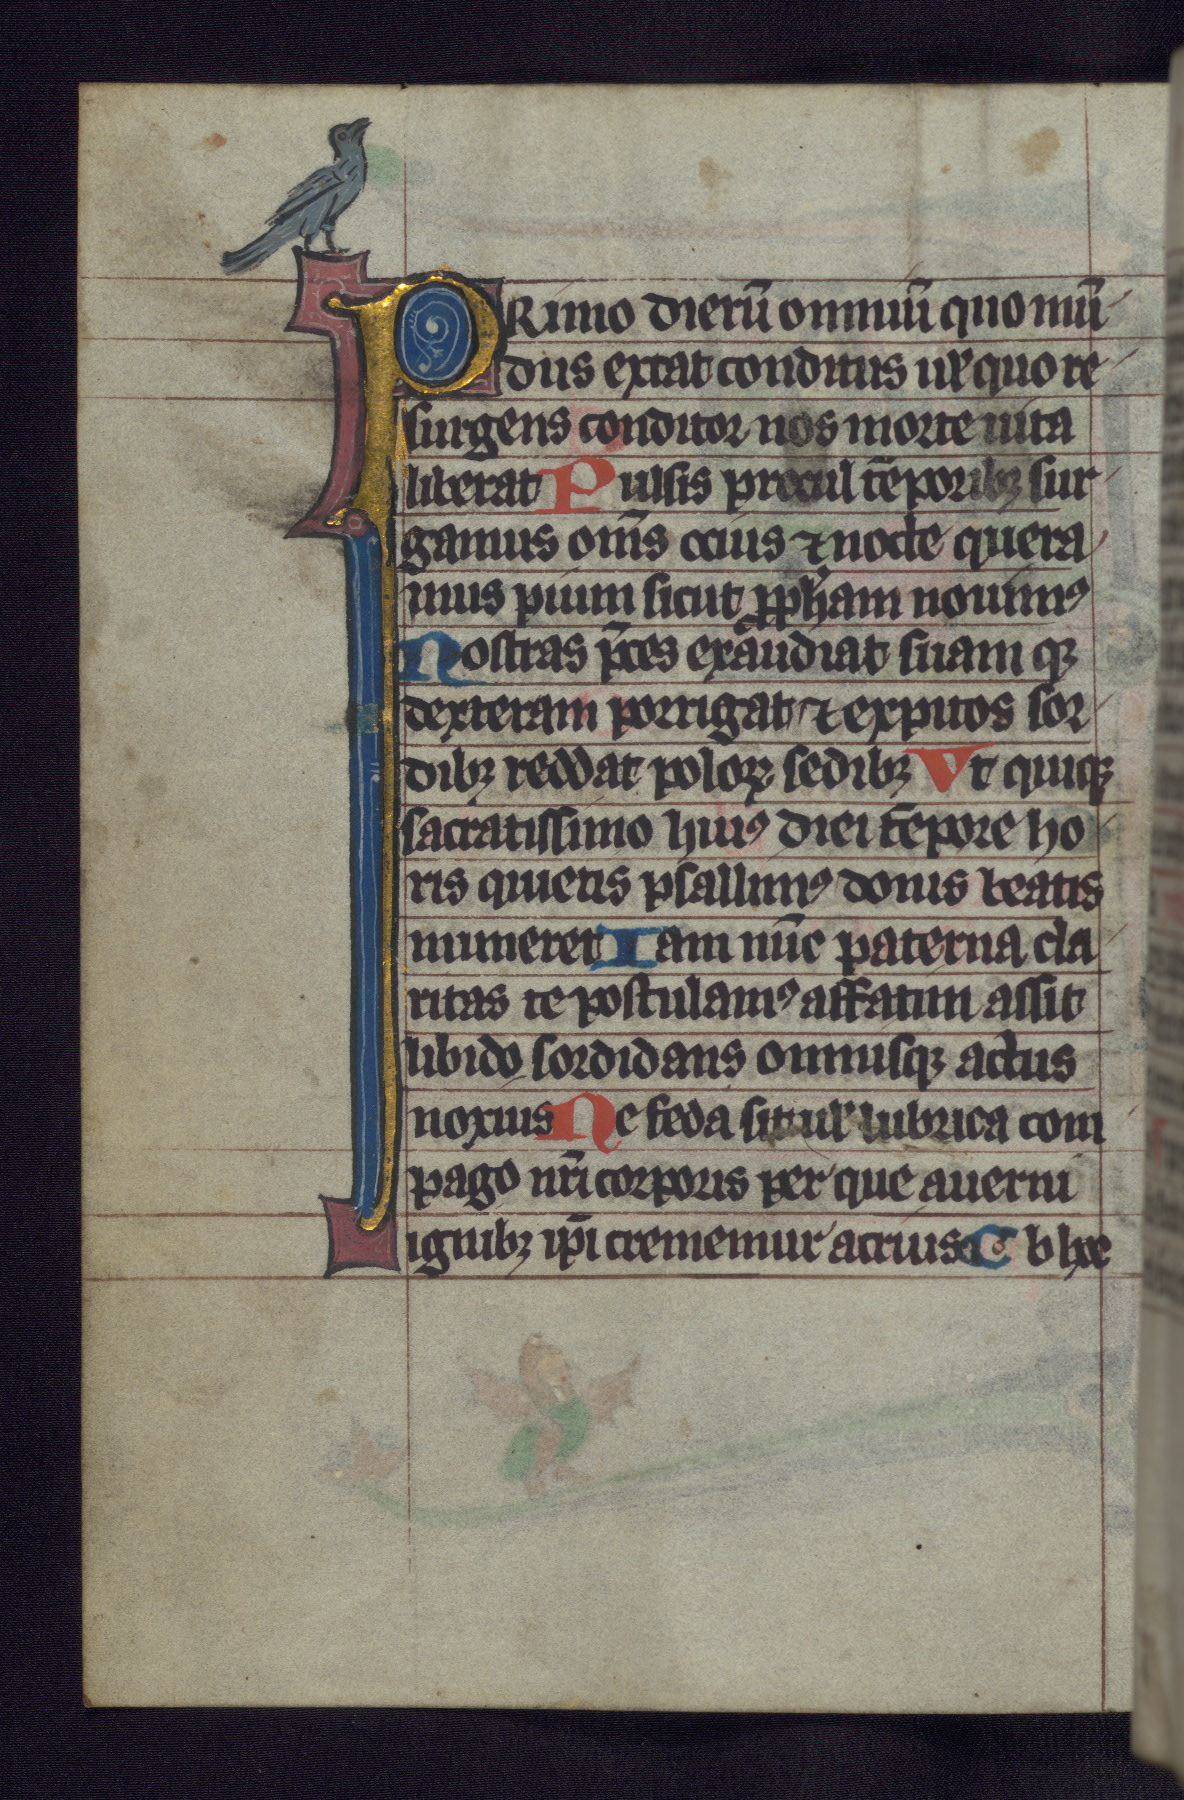 PRimo dierū omniū quo mū
dus extat conditus ul̓ quo re
surgens conditor nos morte uita
liberat Pulsis procul tēporibꝫ sur
gamus om̄s ocius ⁊ nocte quera
mus pium sicut ꝓph̄am nouimꝰ
Nostras p̄ces exaudiat suam qꝫ
dexteram porrigat ⁊ expiatos sor
dibꝫ reddat poloꝝ sedibꝫ Vt quiqꝫ
sacratissimo huiꝰ diei tēpore ho
ris quietis psallimꝰ donis beatis
muneret Iam nūc paterna cla
ritas te postulamꝰ affatim assit
libido sordidans omnisqꝫ actus
noxius Ne feda sit ul̓ lubrica com
pago nr̄i corporis per que auerni
ignibꝫ ip̄i crememur acrius